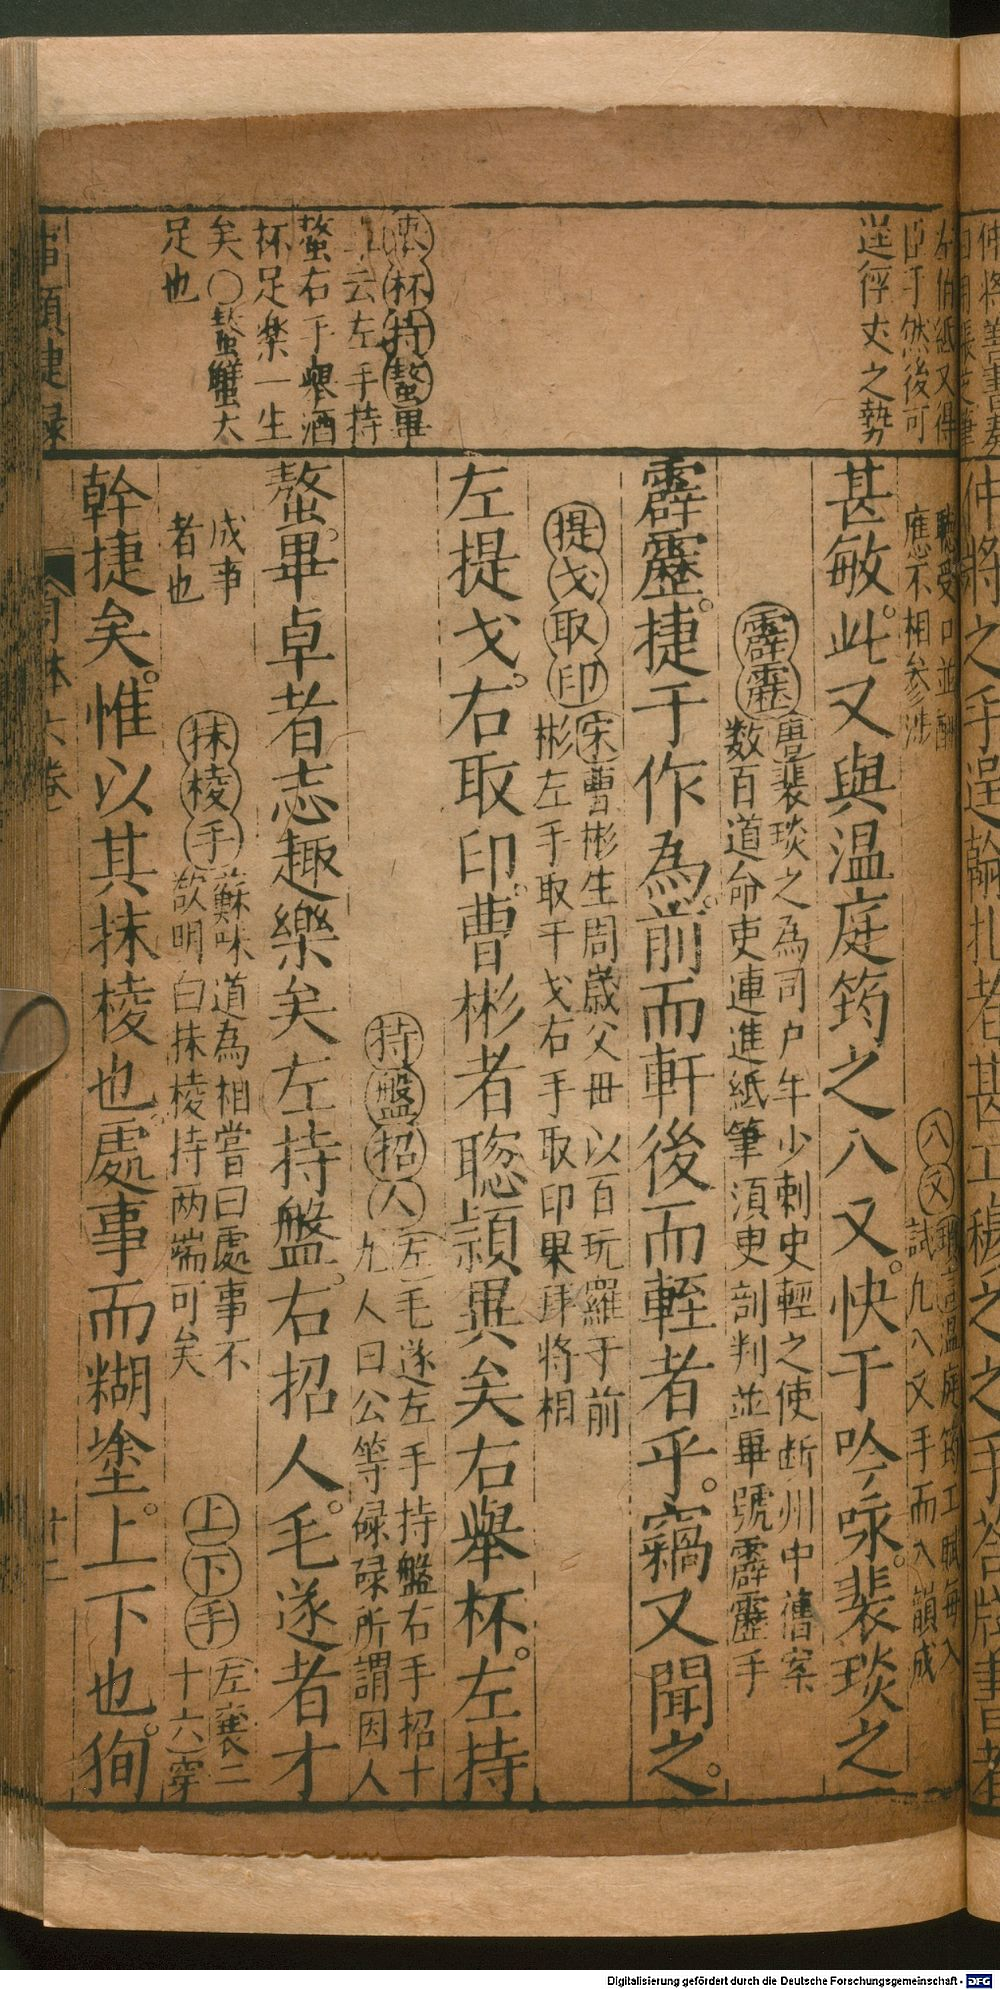 左伯紙又得
臣手然後可
逞徑丈之勢
杯持螯畢
云左手持
螯右手舉酒
杯足樂一生
矣〇螯蟹大
足也
聽受口並酬
應不相參涉
八叉
溫庭筠工賦每入
試凡八叉手而八韻成
甚敏此又與温庭筠之八叉快于吟咏裴琰之
霹靂
唐裴琰之為司户年少刺史輕之使断州中漕案
数百道命吏連進紙筆須臾剖判並畢號霹靂手
霹靂捷于作為前而軒後而輊者乎竊又聞之
提戈取印
宋曹彬生周歲父母以百玩羅于前
彬左手取干戈右手取印果拜將相
左提戈右取印曹彬者聰頴異矣右舉杯左持
持盤招人
左毛遂左手持盤右手招十
九人曰公等碌碌所謂因人
螯畢卓者志趣樂矣左持盤右招人毛遂者才
成事
者也
抹棱手
蘇味道為相嘗曰處事不
欲明白抹棱持两端可矣
上下手
左襄二
十六穿
幹捷矣惟以其抹棱也處事而糊塗上下也狥
六卷
Digitalisierung gefördert durch die Deutsche Forschungsgemeinschaft - DFG